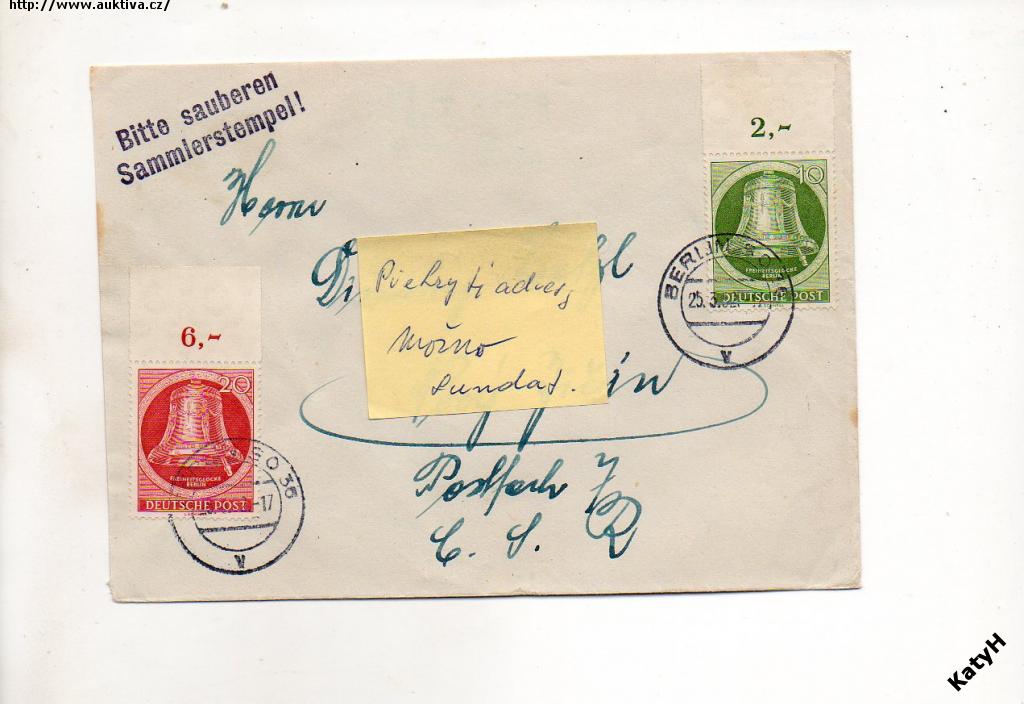 http://www.auktiva.cz/
Bitte sauberen
Sammlerstempel!
Herrn
2,-
10
FREIHEITSGLOCKE
BERLIN
DEUTSCHE POST
BERLIN SO 36
25.3.52
a
Překrytí adresy
možno
sundat.
6,-
20
FREIHEITSGLOCKE
BERLIN
DEUTSCHE POST
SO 36
-17
a
Postfach 7
Č. S. R
KatyH